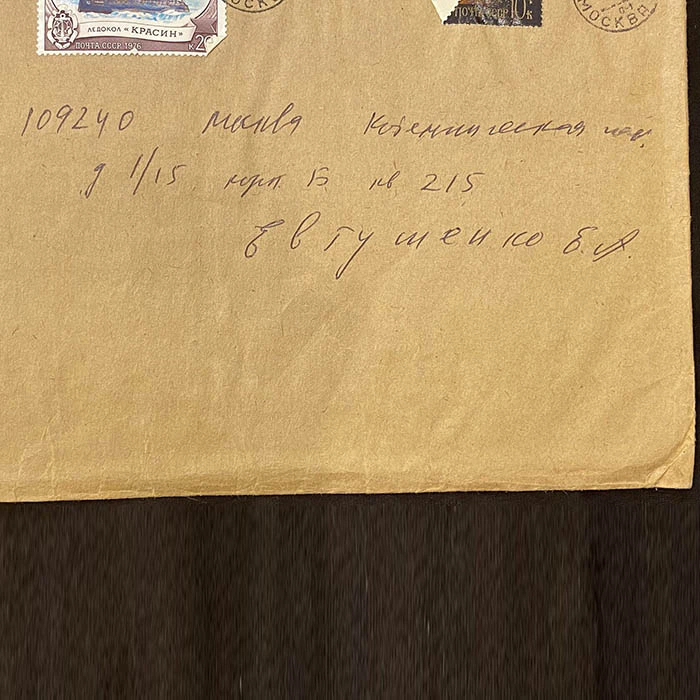 МОСКВА
ЛЕДОКОЛ «КРАСИН»
ПОЧТА СССР 1976 К20
ПОЧТА СССР 10к
МОСКВА
109240 Москва Котельническая наб.
д 1/15 корп Б кв 215
Евтушенко Е.А.